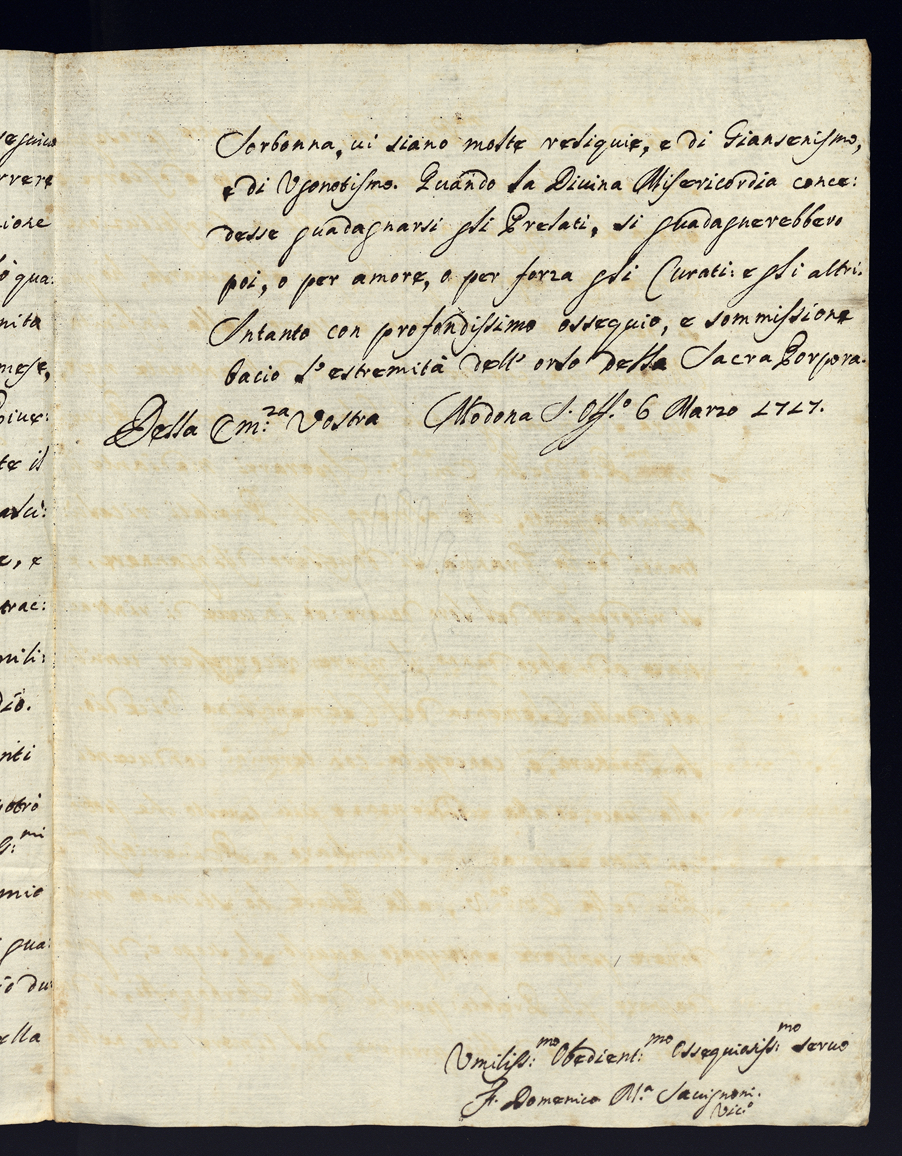 Sorbonna, ui siano molte reliquie, e di Giansenismo,
e di Vgonotismo. Quando la Diuina Misericordia conce:
desse guadagnarsi gli Prelati, si guadagnerebbero
poi, o per amore, o per forza gli Curati: e gli altri.
Intanto con profondissimo ossequio, e sommissione
bacio l'estremità dell' orlo della Sacra Porpora.
Della Em:za Vostra Modona S. Off.o 6 Marzo 1717.
rrere
ione
qua:
nita
mese,
te il
e, e
trac:
mili:
dio.
nti
potrò
mi
mio
gua:
du
ella
Vmiliss:mo Obedient:mo Ossequiosiss:mo seruo
F. Domenico M.a Sauignoni.
Vic.o